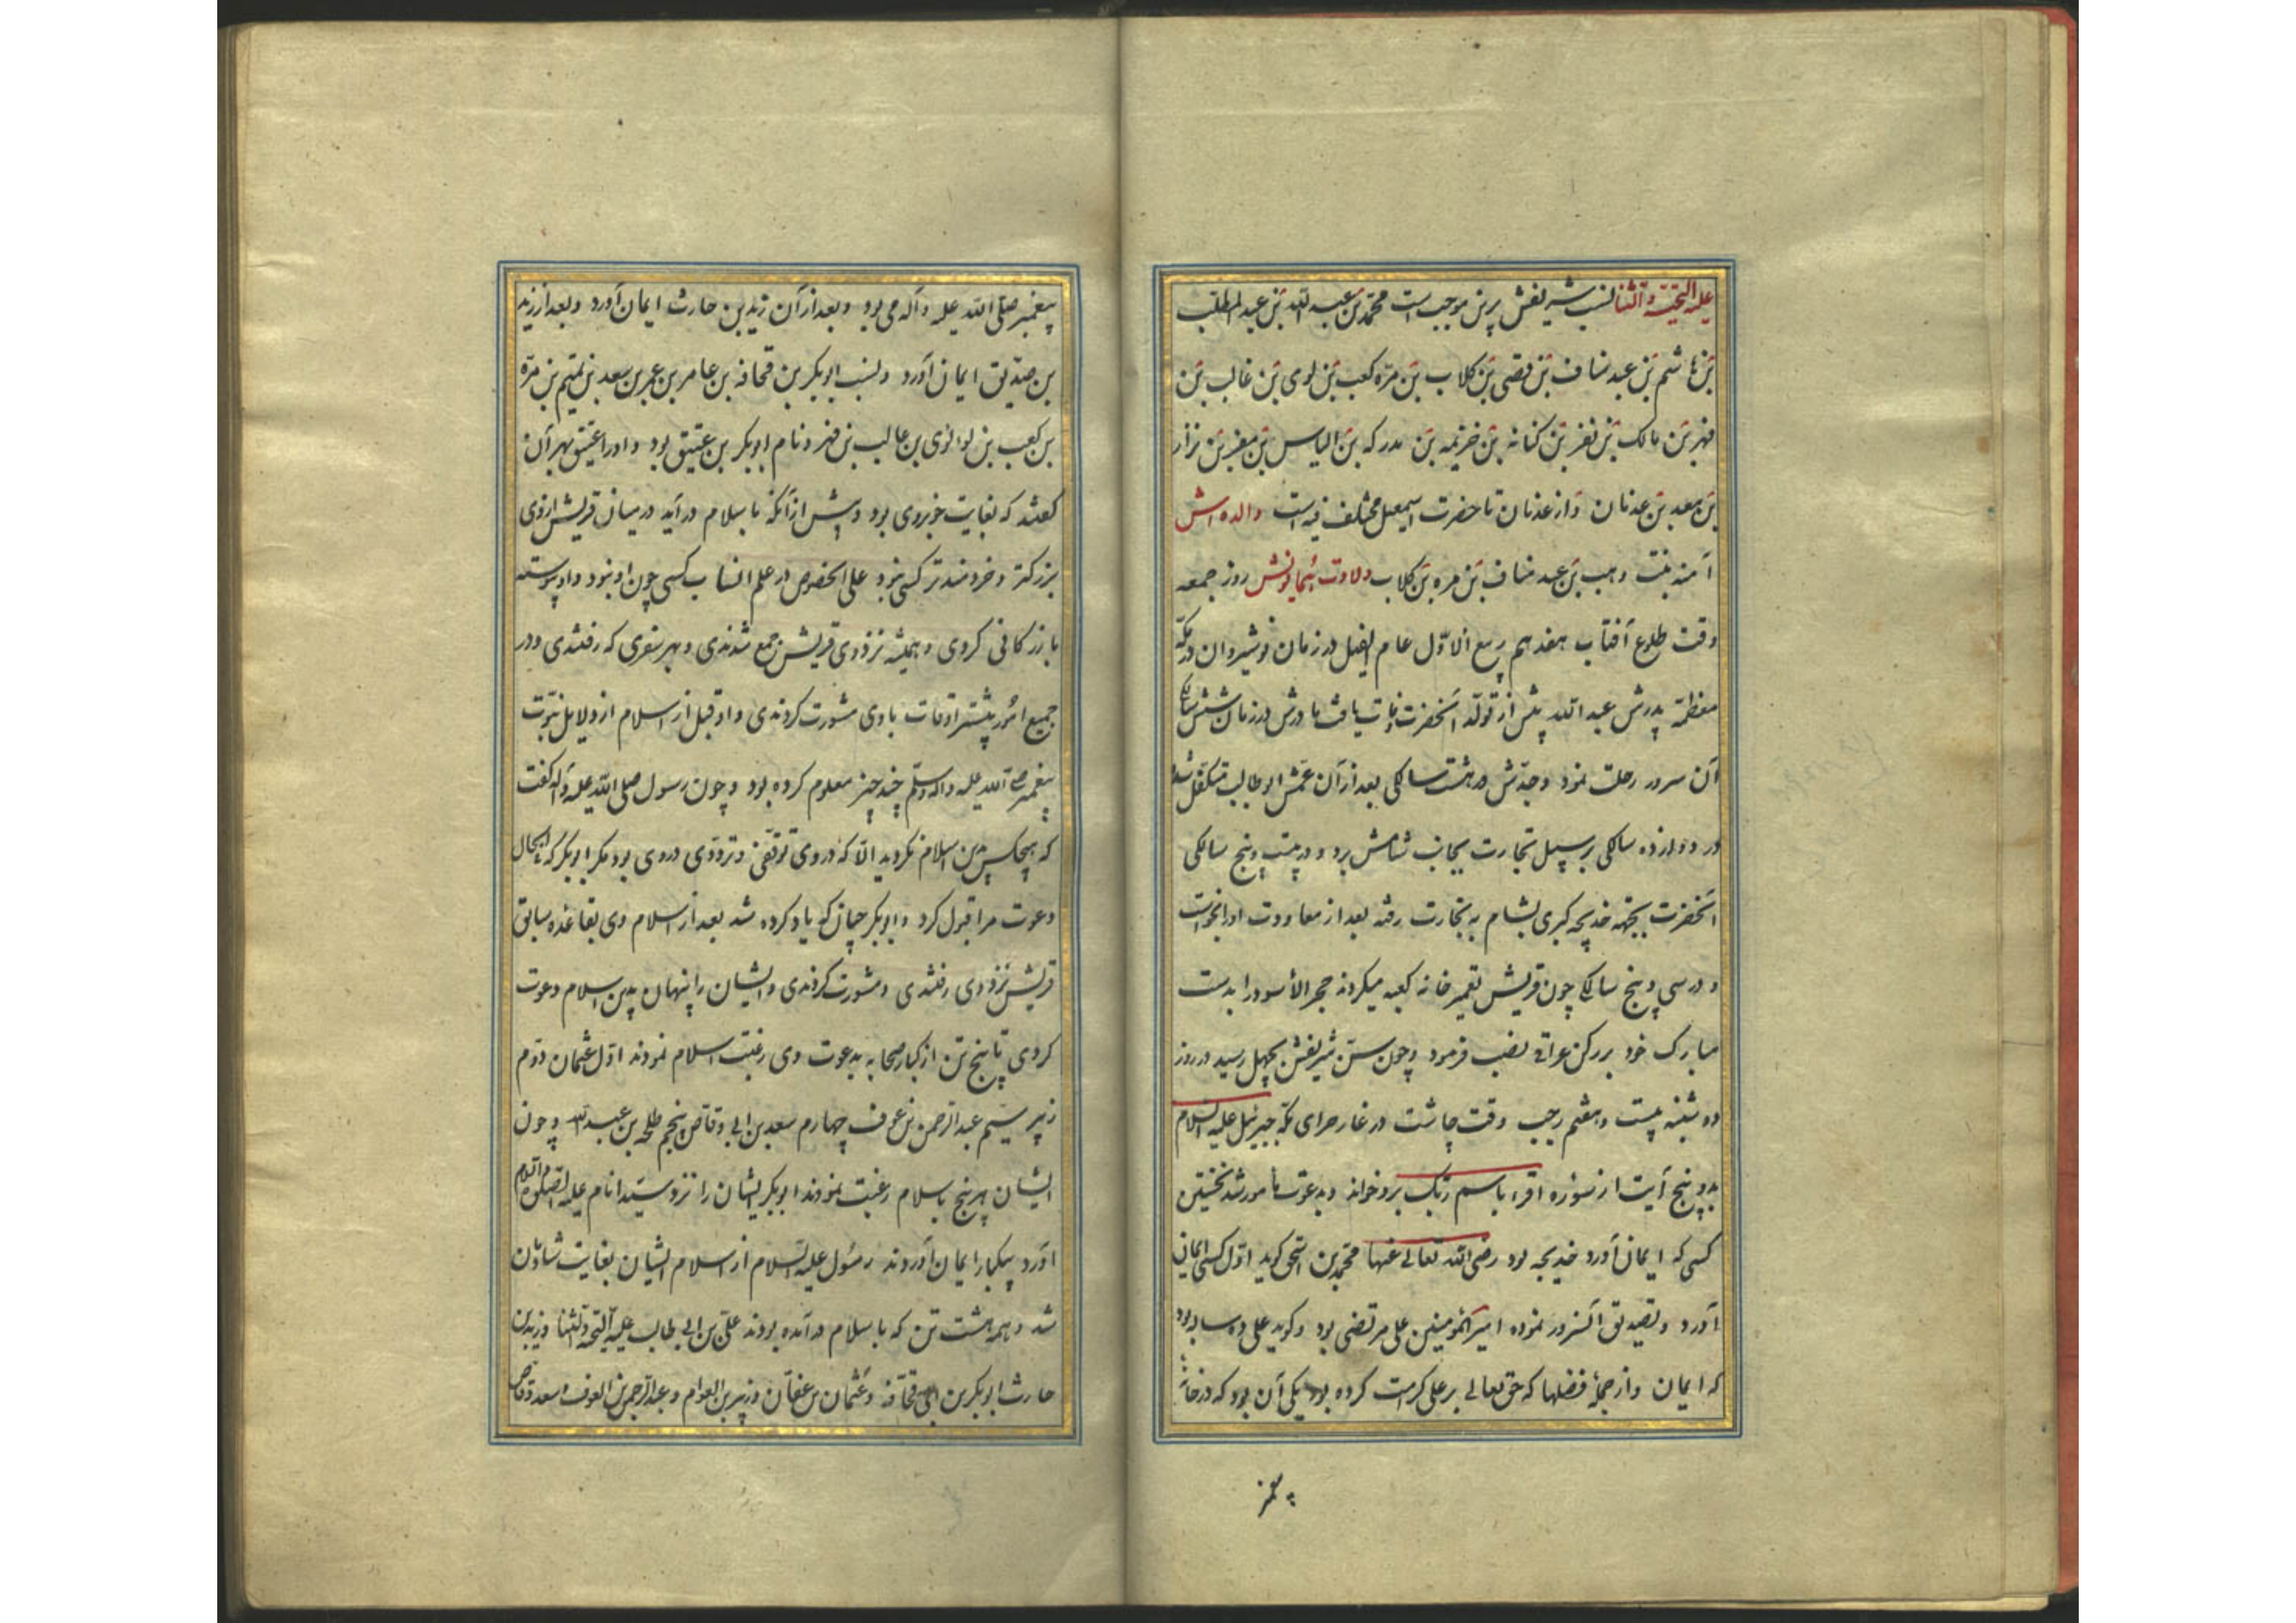 علیه التحیّة والثنا نسب شریفش برین موجب است محمّد بن عبد الله بن عبد المطلب
بن هاشم بن عبد مناف بن قصی بن کلاب بن مرّه کعب بن لوی بن غالب بن
فهر بن مالک بن نضر بن کنانه بن خزیمه بن مدرکه بن الیاس بن مضر بن نزار
بن معد بن عدنان و از عدنان تا حضرت اسمعیل مختلف فیه است والده اش
آمنه بنت وهب بن عبد مناف بن مره بن کلاب ولادت همایونش روز جمعه
وقت طلوع آفتاب هفدهم ربیع الاوّل عام الفیل در زمان نوشیروان در مکّه
معظمّه پدرش عبد الله پیش از تولّد آنحضرت وفات یافت مادرش در زمان شش سالکی
آن سرور رحلت نمود و جدّش در هشت سالکی بعد از آن عمّش ابو طالب متکفّل شد
در دوازده سالکی بر سبیل تجارت بجانب شامش برد و در بیست و پنج سالکی
آنحضرت بجهة خدیجه کبری بشام به تجارت رفته بعد از معاودت او را بخواست
و در سی و پنج سالکی چون قریش تعمیر خانه کعبه میکردند حجر الأسود را بدست
مبارک خود بر رکن عراقی نصب فرمود و چون سنّ شریفش بچهل رسید در روز
دو شنبه بیست و هفتم رجب وقت چاشت در غار حرای مکّه جبرئیل علیه السلام
بدو پنج آیت از سوره اقرء باسم ربّک برو خواند و بدعوت مأمور شد نخستین
کسی که ایمان آورد خدیجه بود رضی الله تعالی عنها محمّد بن اسحق کوید اوّل کسی ایمان
آورد و تصدیق آنسرور نموده امیر المؤمنین علی مرتضی بود و کوید علی ده ساله بود
که ایمان و از جملۀ فضلها که حق تعالی بر علی کرامت کرده بود یکی آن بود که در خانۀ
پیغمبر
پیغمبر صلّی الله علیه و آله می بود و بعد از آن زید بن حارث ایمان آورد و بعد از زید
بن صدّیق ایمان آورد و نسب ابو بکر بن قحافه بن عامر بن عمر بن سعد بن تمیم بن مرّه
بن کعب بن لو لوی بن غالب بن فهر و نام ابو بکر بن عتیق بود و او را عتیق بهر آن
کفتند که بغایت خوبروی بود و پیش از آنکه باسلام در آید در میان قریش از وی
بزرکتر و خردمندتر کسی نبود علی الخصوص در علم انساب کسی چون او نبود و او پیوسته
بازرکانی کردی و همیشه نزد وی قریش جمع شدندی و بهر سفری که رفتندی و در
جمیع امور بیشتر اوقات با وی مشورت کردندی و او قبل از اسلام از دلایل نبوّت
پیغمبر صلّی الله علیه و آله وسلّم چند چیز معلوم کرده بود و چون رسول صلی الله علیه و آله کفت
که هیچکس بدین اسلام نکروید الّا که در وی توقّفی و تردّدی در وی بود مکر ابو بکر که
دعوت مرا قبول کرد و ابو بکر چنان که یاد کرده شد بعد از اسلام وی بقاعده سابق
قریش نزد وی رفتندی و مشورت کردندی و ایشان را پنهان بدین اسلام دعوت
کردی تا پنج تن از کبار صحابه بدعوت وی رغبت اسلام نمودند اوّل عثمان دوّم
زبیر سیّم عبد الرحمن بن عوف چهارم سعد بن ابی وقاص پنجم طلحه بن عبد الله و چون
ایشان هر پنج باسلام رغبت نمودند ابو بکر ایشان را نزد سیّد انام علیه الصلوة والسلام
آورد بیکبار ایمان آوردند رسول علیه السلام از اسلام ایشان بغایت شادمان
شد و همه هشت تن که باسلام در آمده بودند علی بن ابی طالب علیه التحیة والثنا و زید بن
حارث ابو بکر بن ابی قحافه و عثمان بن عفّان و زبیر بن العوام و عبد الرحمن بن العوف و سعد وقاص